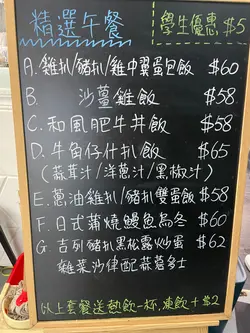 精選午餐
學生優惠 $5
A. 雞扒/豬扒/雞中翼蛋包飯 $60
B. 沙薑雞飯 $58
C. 和風肥牛丼飯 $58
D. 牛角仔什扒飯 $65
(蒜茸汁/洋蔥汁/黑椒汁)
E. 蔥油雞扒/豬扒雙蛋飯 $58
F. 日式蒲燒鰻魚烏冬 $60
G. 吉列豬扒黑松露炒蛋 $62
雜菜沙律配蒜蓉多士
以上套餐送熱飲一杯,凍飲+$2